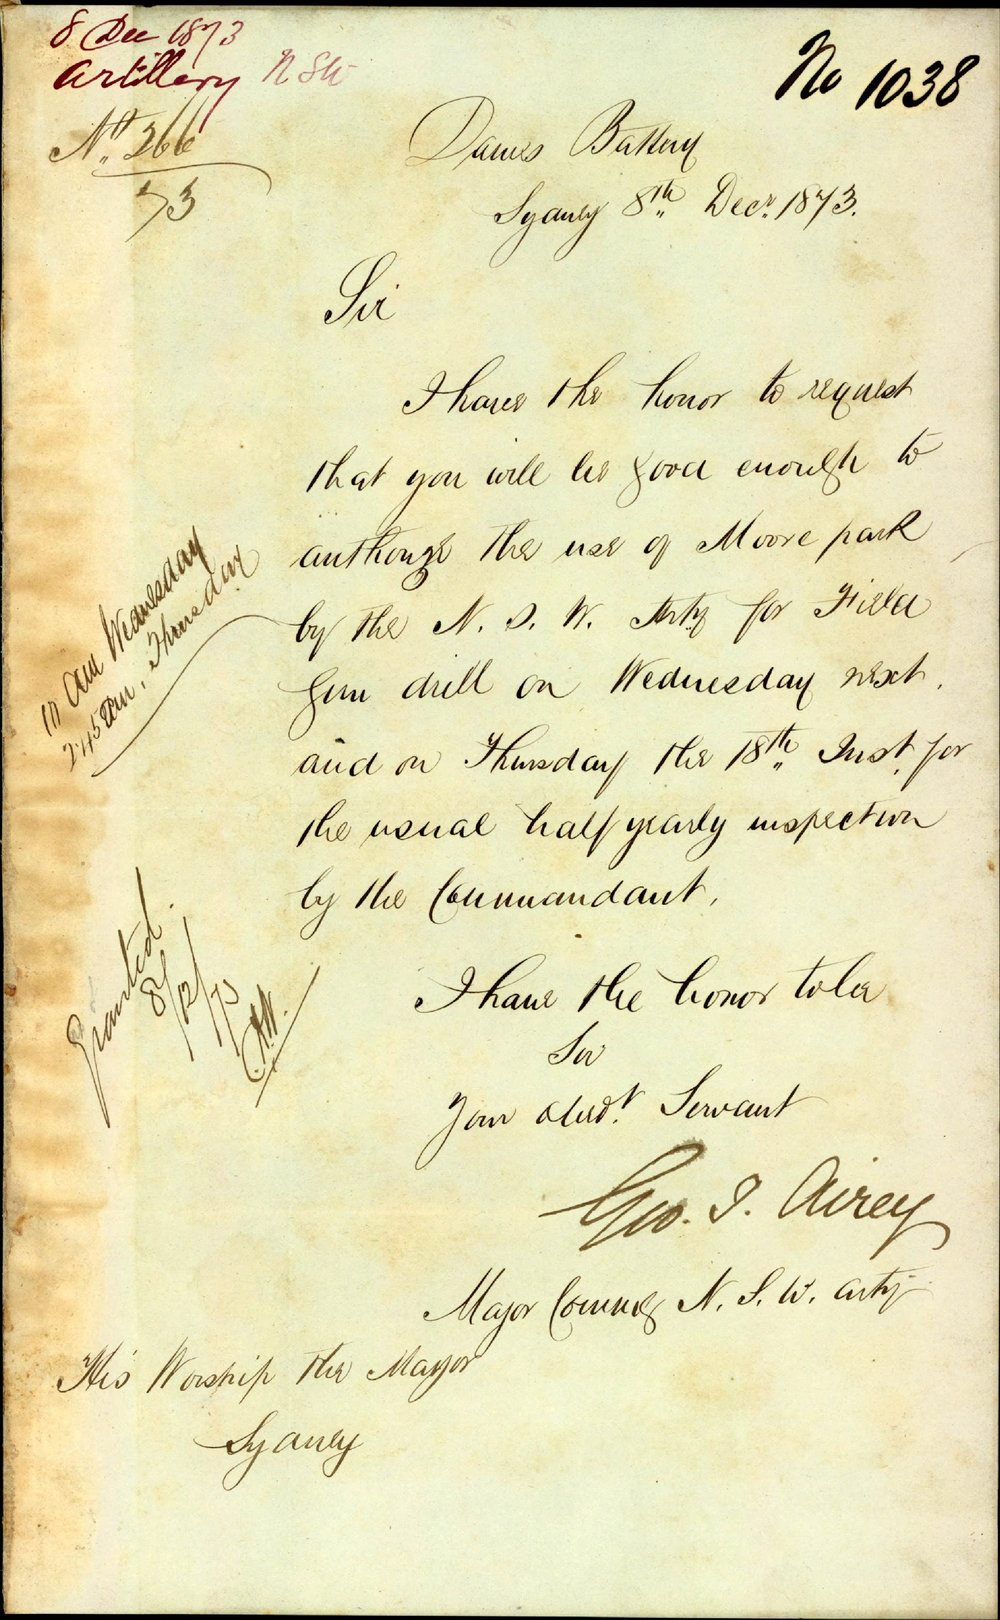 8 Dec 1873
Artillery NSW
No 1038
No. 266
73
Dawes Battery
Sydney 8th Decr. 1873.
Sir
I have the honor to request
that you will be good enough to
authorize the use of Moore park
by the N. S. W. Arty for Field
Gun drill on Wednesday next,
and on Thursday the 18th Inst. for
the usual half yearly inspection
by the Commandant.
am Wednesday
2.45 pm, Thursday
Granted.
8/12/73
I have the honor to be
Sir
Your obedt. Servant
Geo. J. Airey
Major Commdg N. S. W. Arty
His Worship the Mayor
Sydney